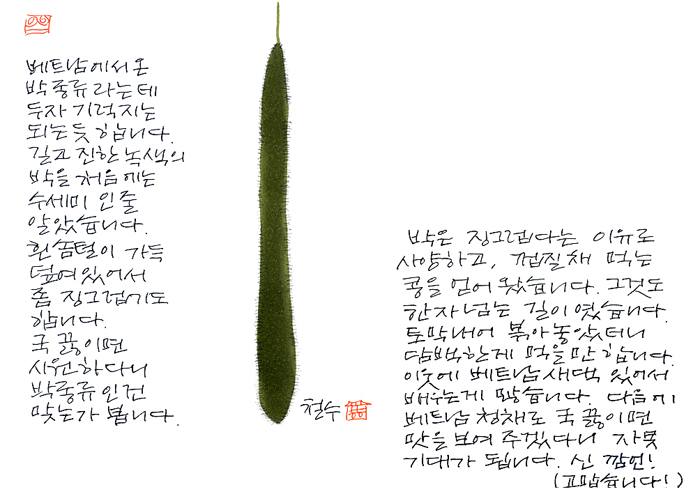 베트남에서 온
박 종류 라는데
두자 기럭지는
되는 듯 합니다.
길고 진한 녹색의
박을 처음에는
수세미 인 줄
알았습니다.
흰 솜털이 가득
덮여있어서
좀 징그럽기도
합니다.
국 끓이면
시원하다니
박 종류인건
맞는가 봅니다.
철수
박은 징그럽다는 이유로
사양하고, 껍질채 먹는
콩을 얻어 왔습니다. 그것도
한자 넘는 길이였습니다.
토막내어 볶아 놓았더니
담백한게 먹을만 합니다.
이웃에 베트남 새댁 있어서
배우는게 많습니다. 다음에
베트남 청채로 국 끓이면
맛을 보여 주겠다니 자못
기대가 됩니다. 신 깜언!
(고맙습니다!)